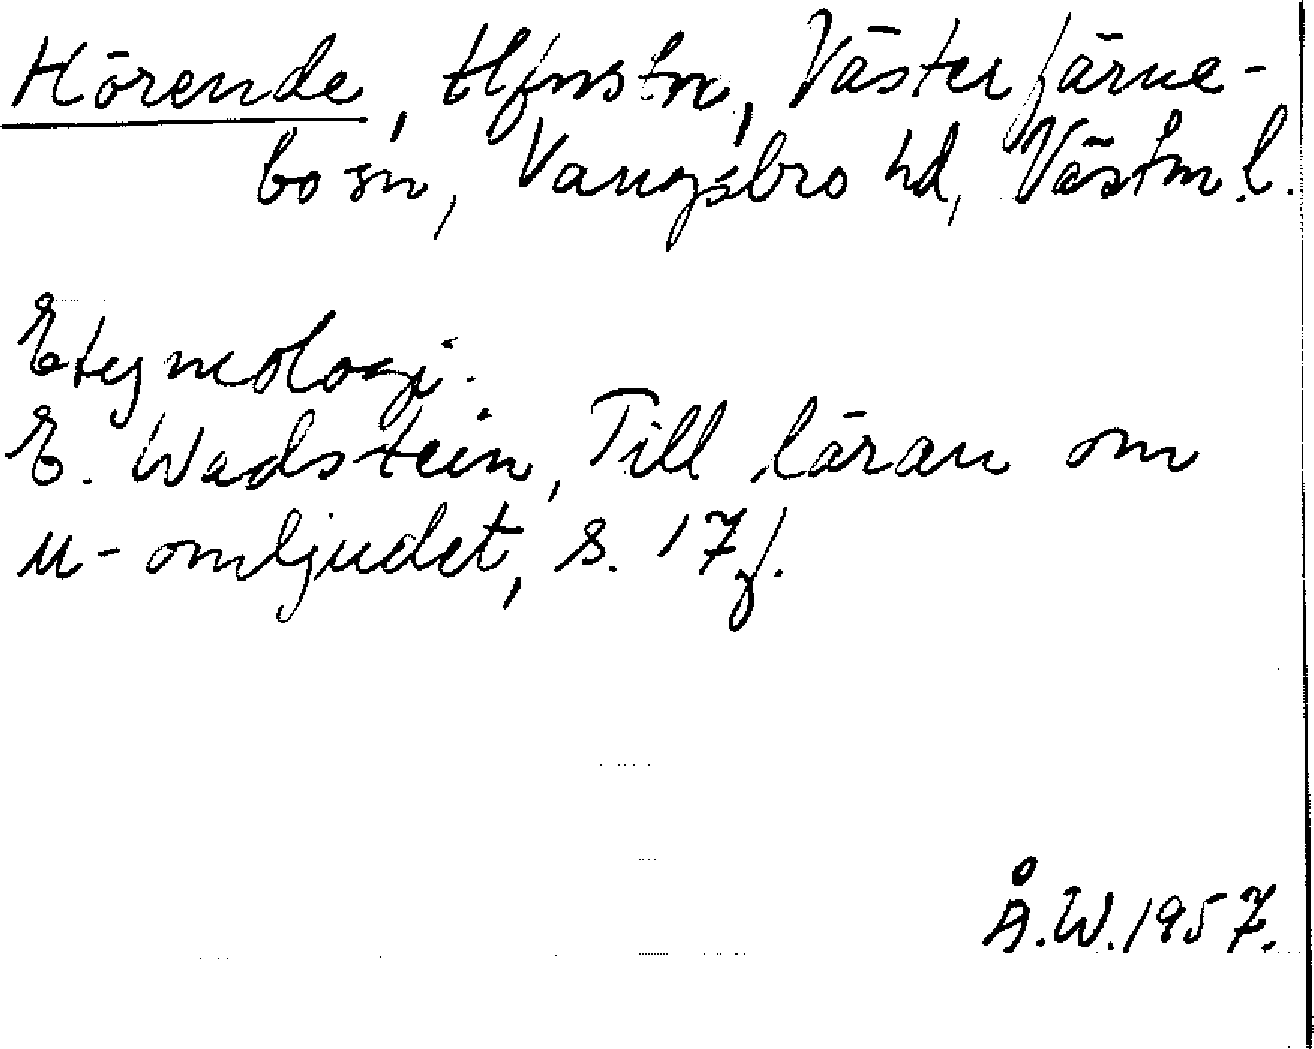 Hörende, tfnstn, Västerfärne-
bo sn, Vangsbro hd, Västm. l.
Etymologi.
E. Wadstein, Till läran om
u-omljudet, s. 17 f.
Å.W. 1957.